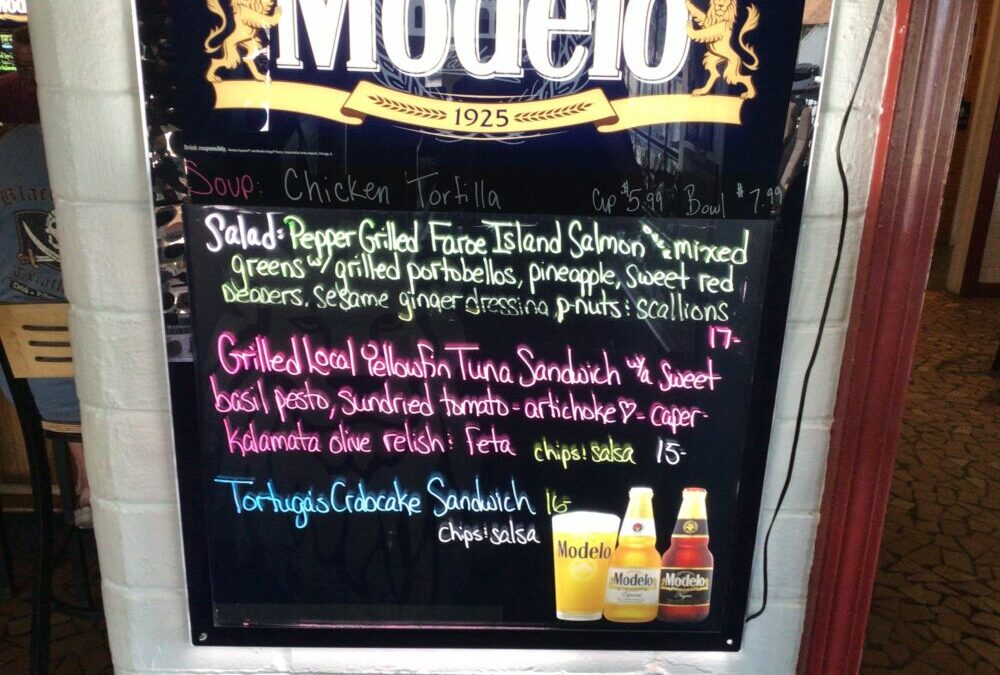 Modelo
1925
Drink responsibly.
Soup: Chicken Tortilla Cup $5.99 Bowl $7.99
Salad: Pepper Grilled Faroe Island Salmon mixed
greens w/ grilled portobellos, pineapple, sweet red
peppers, sesame ginger dressing p-nuts : scallions
17-
Grilled Local Yellowfin Tuna Sandwich w/a Sweet
basil pesto, sundried tomato - artichoke♡ - caper -
Kalamata olive relish : feta chips : salsa 15-
Tortuga's Crabcake Sandwich 16-
chips : salsa
Modelo
Modelo
Modelo